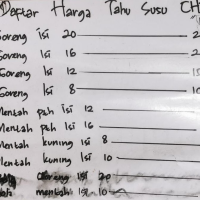 Daftar Harga Tahu Susu CH
Goreng isi 20 — 2
Goreng isi 16 — 2
Goreng isi 12 — 1
Goreng isi 8 — 1
Mentah puh isi 12
Mentah puh isi 16
Mentah kuning isi 8
Mentah kuning isi 10
Goreng isi 20
mentah isi 10